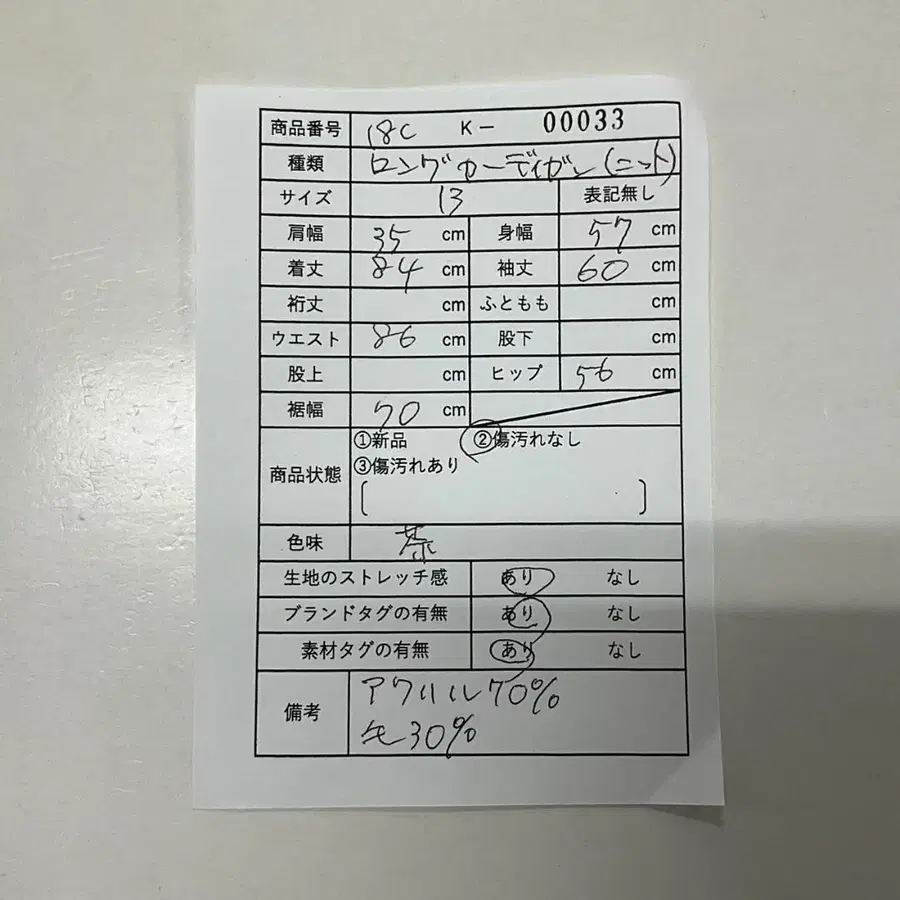 商品番号 18C K- 00033
種類 ロングカーディガン(ニット)
サイズ 13 表記無し
肩幅 35 cm 身幅 57 cm
着丈 84 cm 袖丈 60 cm
裄丈 cm ふともも cm
ウエスト 86 cm 股下 cm
股上 cm ヒップ 56 cm
裾幅 70 cm
①新品 ②傷汚れなし
③傷汚れあり
商品状態 [ ]
色味 茶
生地のストレッチ感 あり なし
ブランドタグの有無 あり なし
素材タグの有無 あり なし
備考 アクリル70%
毛30%